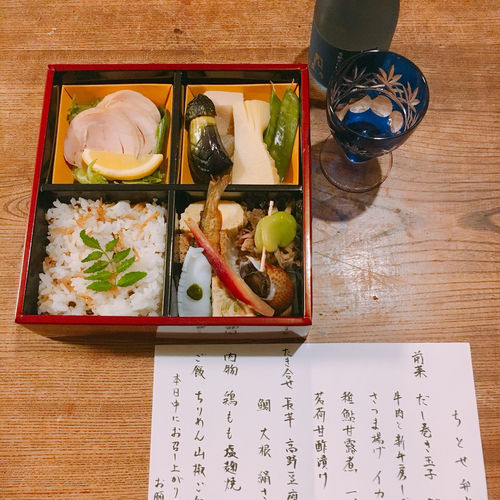 ちとせ弁
前菜 だし巻き玉子
牛肉と新牛房し
さつま揚げ イカ
稚鮎甘露煮 一
茗荷甘酢漬り
たき合せ 長芋 高野豆腐
鯛 大根 絹さ
肉物 鶏もも塩麹焼
ご飯 ちりめん山椒ご
本日中にお召し上がり
お願